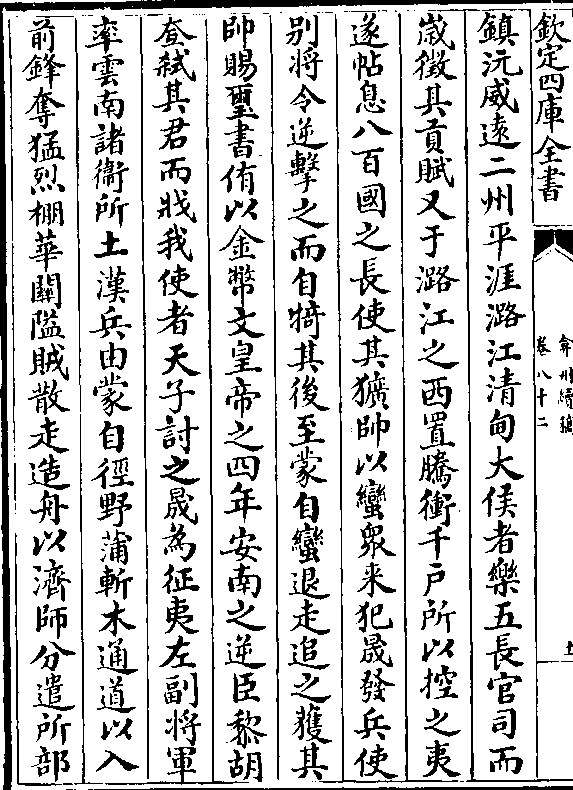 欽定四庫全書
弇州續稿
卷八十二
鎮沅威遠二州平涯潞江清甸大侯者樂五長官司而
歲徵其貢賦又于潞江之西置騰衝千戶所以控之夷
遂帖息八百國之長使其獷帥以蠻衆来犯晟發兵使
别將令逆擊之而自犄其後至蒙自蠻退走追之獲其
帥賜璽書侑以金幣文皇帝之四年安南之逆臣黎胡
𡗝弒其君而戕我使者天子討之晟為征夷左副將軍
率雲南諸衞所土漢兵由蒙自徑野蒲斬木通道以入
前鋒奪猛烈棚華關隘賊散走造舟以濟師分遣所部